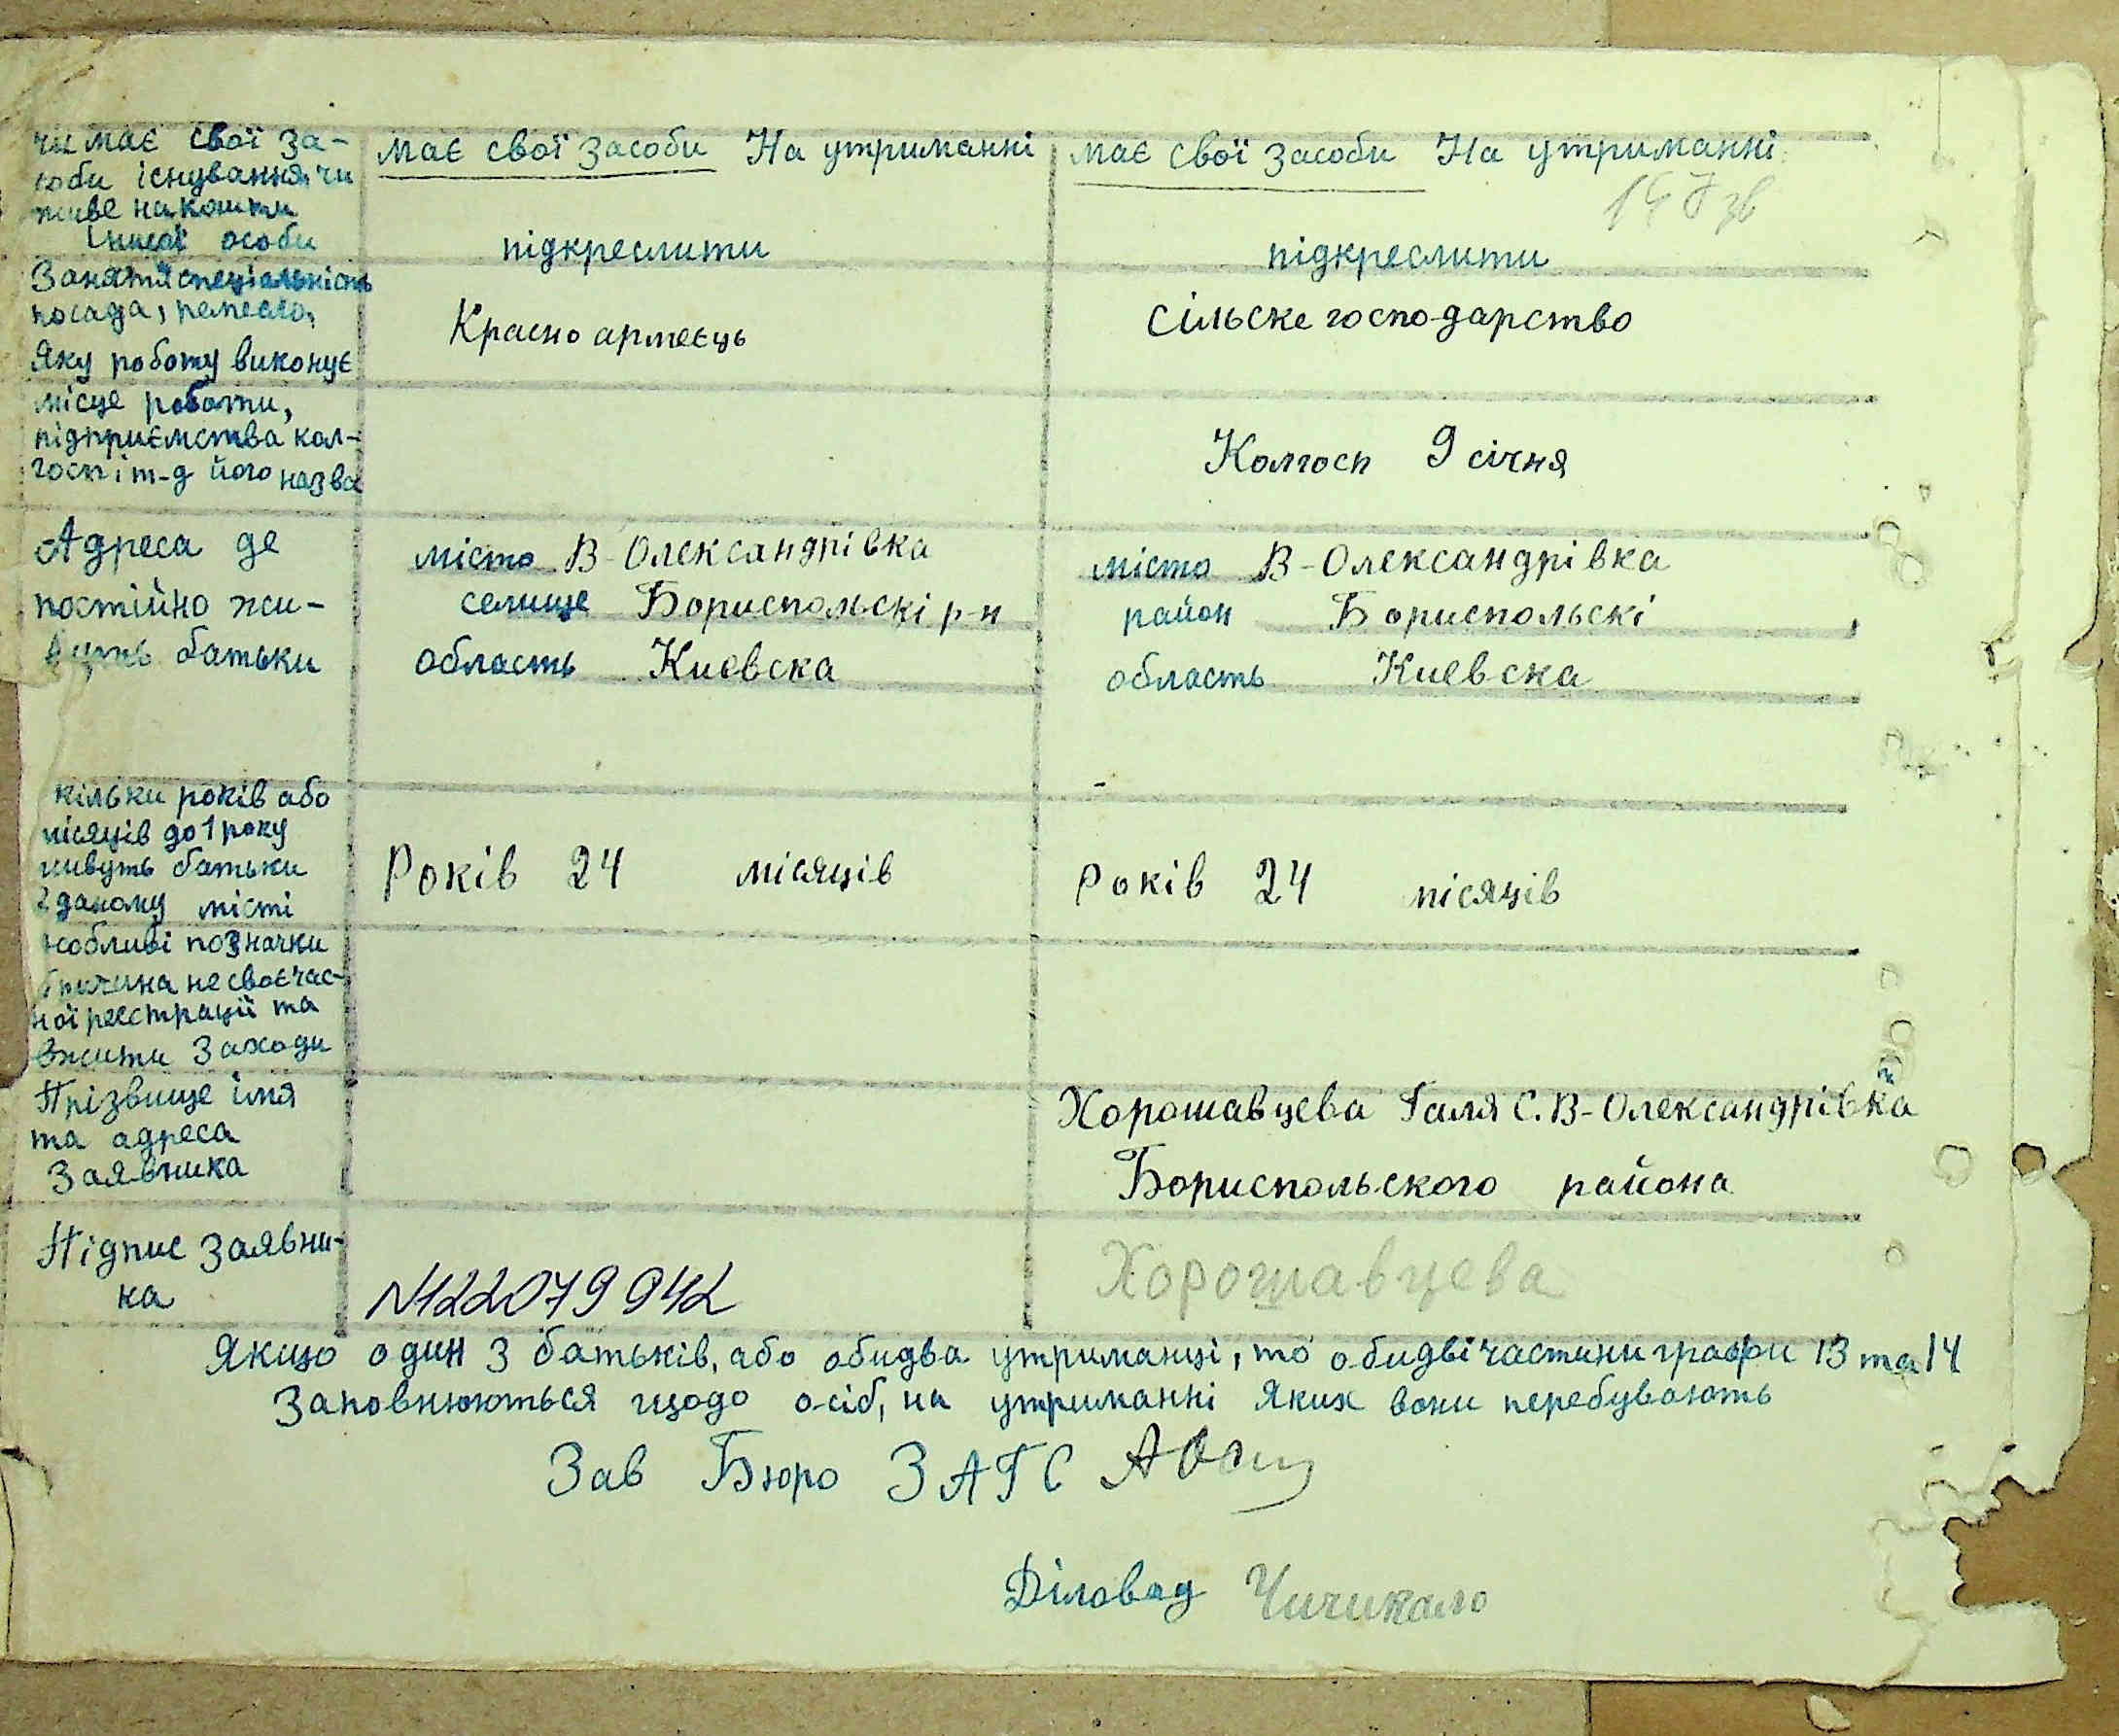 чи має свої за-
соби існування, чи
живе на кошти
іншої особи
має свої засоби На утриманні
підкреслити
має свої засоби На утриманні
підкреслити
Заняття спеціальність
посада, ремесло,
Яку роботу виконує
Красно армеєць
Сільске господарство
місце роботи,
підприємства кол-
госп і т-д його назва
Колгосп 9 січня
Адреса де
постійно жи-
вуть батьки
місто В-Олександрівка
селище Бориспольскі р-н
область Киевска
місто В-Олександрівка
район Бориспольскі
область Киевска
кільки років або
місяців до 1 року
живуть батьки
в даному місті
Років 24 місяців
Років 24 місяців
особливі позначки
Причина не своєчас-
ної реєстрації та
вжити заходи
Прізвище імя
та адреса
Заявника
Хорошавцева Галя С. В-Олександрівка
Бориспольского района
Підпис Заявни-
ка
№122079942
Хорошавцева
Якщо один з батьків, або обидва утриманці, то обидві частини графи 13 та 14
Заповнюються щодо осіб, на утриманні яких вони перебувають
Зав Бюро ЗАГС
Діловод Чичикало